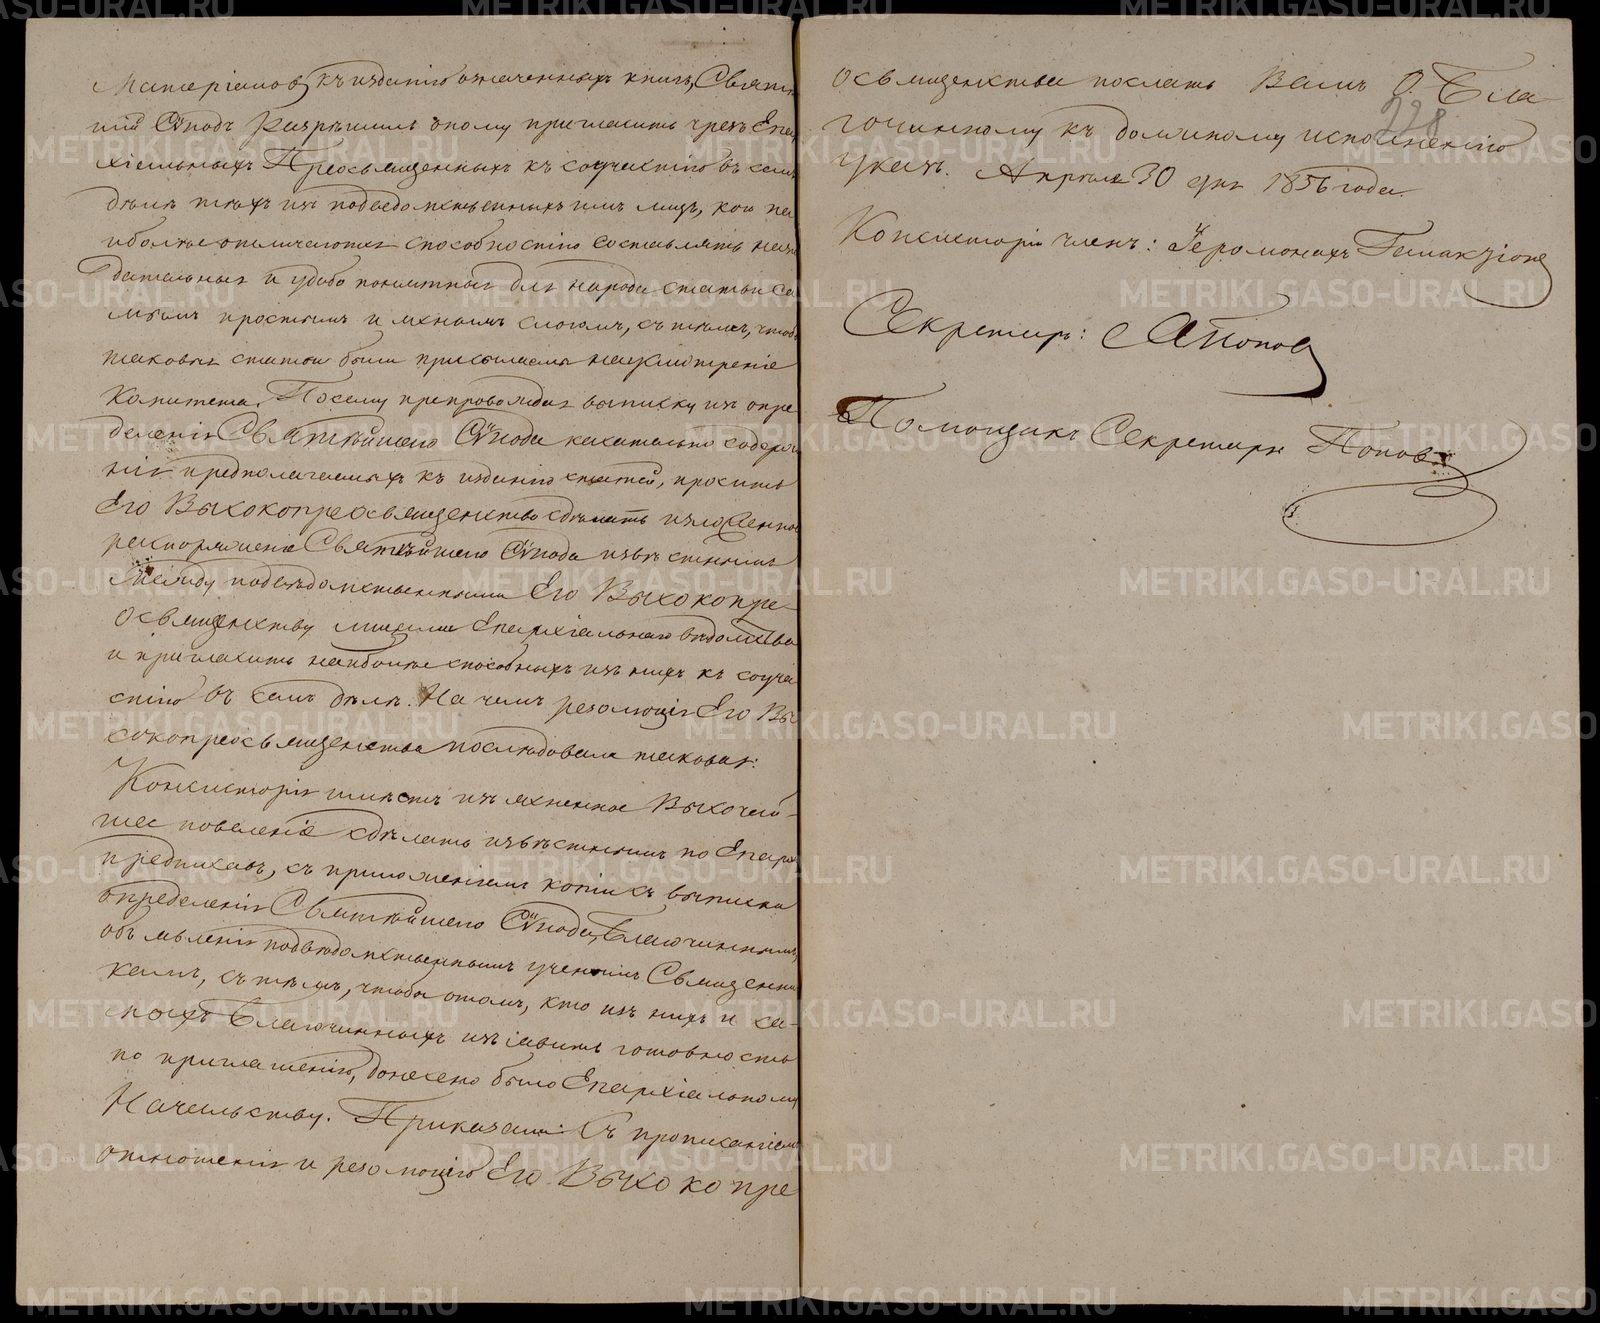 Матеріаловъ къ изданію означенныхъ книгъ, Святѣй
шій Сѵнодъ разрѣшилъ оному пригласить чрезъ Епар
хіальныхъ Преосвященныхъ къ соучастію въ семъ
дѣлѣ тѣхъ изъ подвѣдомственныхъ имъ лицъ, кои на
иболѣе отличаются способностію составлять нази
дательныя и удобо понятныя для народа статьи са
мымъ простымъ и яснымъ слогомъ, съ тѣмъ, чтобы
таковыя статьи были присылаемы на разсмотрѣніе
Комитета. Посему препровождая выписку изъ опре
деленія Святѣйшаго Сѵнода касательно содержа
нія предполагаемыхъ къ изданію статей, проситъ
Его Высокопреосвященство сдѣлать изложенное
распоряженіе Святѣйшаго Сѵнода извѣстнымъ
между подвѣдомственными Его Высокопре-
освященству лицами Епархіальнаго вѣдомства
и пригласить наиболѣе способныхъ изъ нихъ къ соуча
стію въ семъ дѣлѣ. На чемъ резолюція Его Вы
сокопреосвященства послѣдовала таковая:
Консисторія имѣетъ изъясненное Высочай-
шее повеленіе сдѣлать извѣстнымъ по Епархіи
предписавъ, съ приложеніемъ копіи съ выписки
опредѣленія Святѣйшаго Сѵнода, Благочиннымъ,
объявленія подвѣдомственнымъ ученымъ Священни
камъ, съ тѣмъ, чтобы о томъ, кто изъ нихъ и са-
михъ Благочинныхъ изъявитъ готовность
по приглашенію, донесено было Епархіальному
Начальству. Приказали: Съ прописаніемъ
отношенія и резолюціи Его Высокопре
освященства послать Вамъ О. Бла-
228
гочинному къ должному исполненію
указъ. Апрѣля 30 дня 1856 года.
Консисторіи членъ: Іеромонахъ
Секретарь: Попов
Помощникъ Секретаря Попов